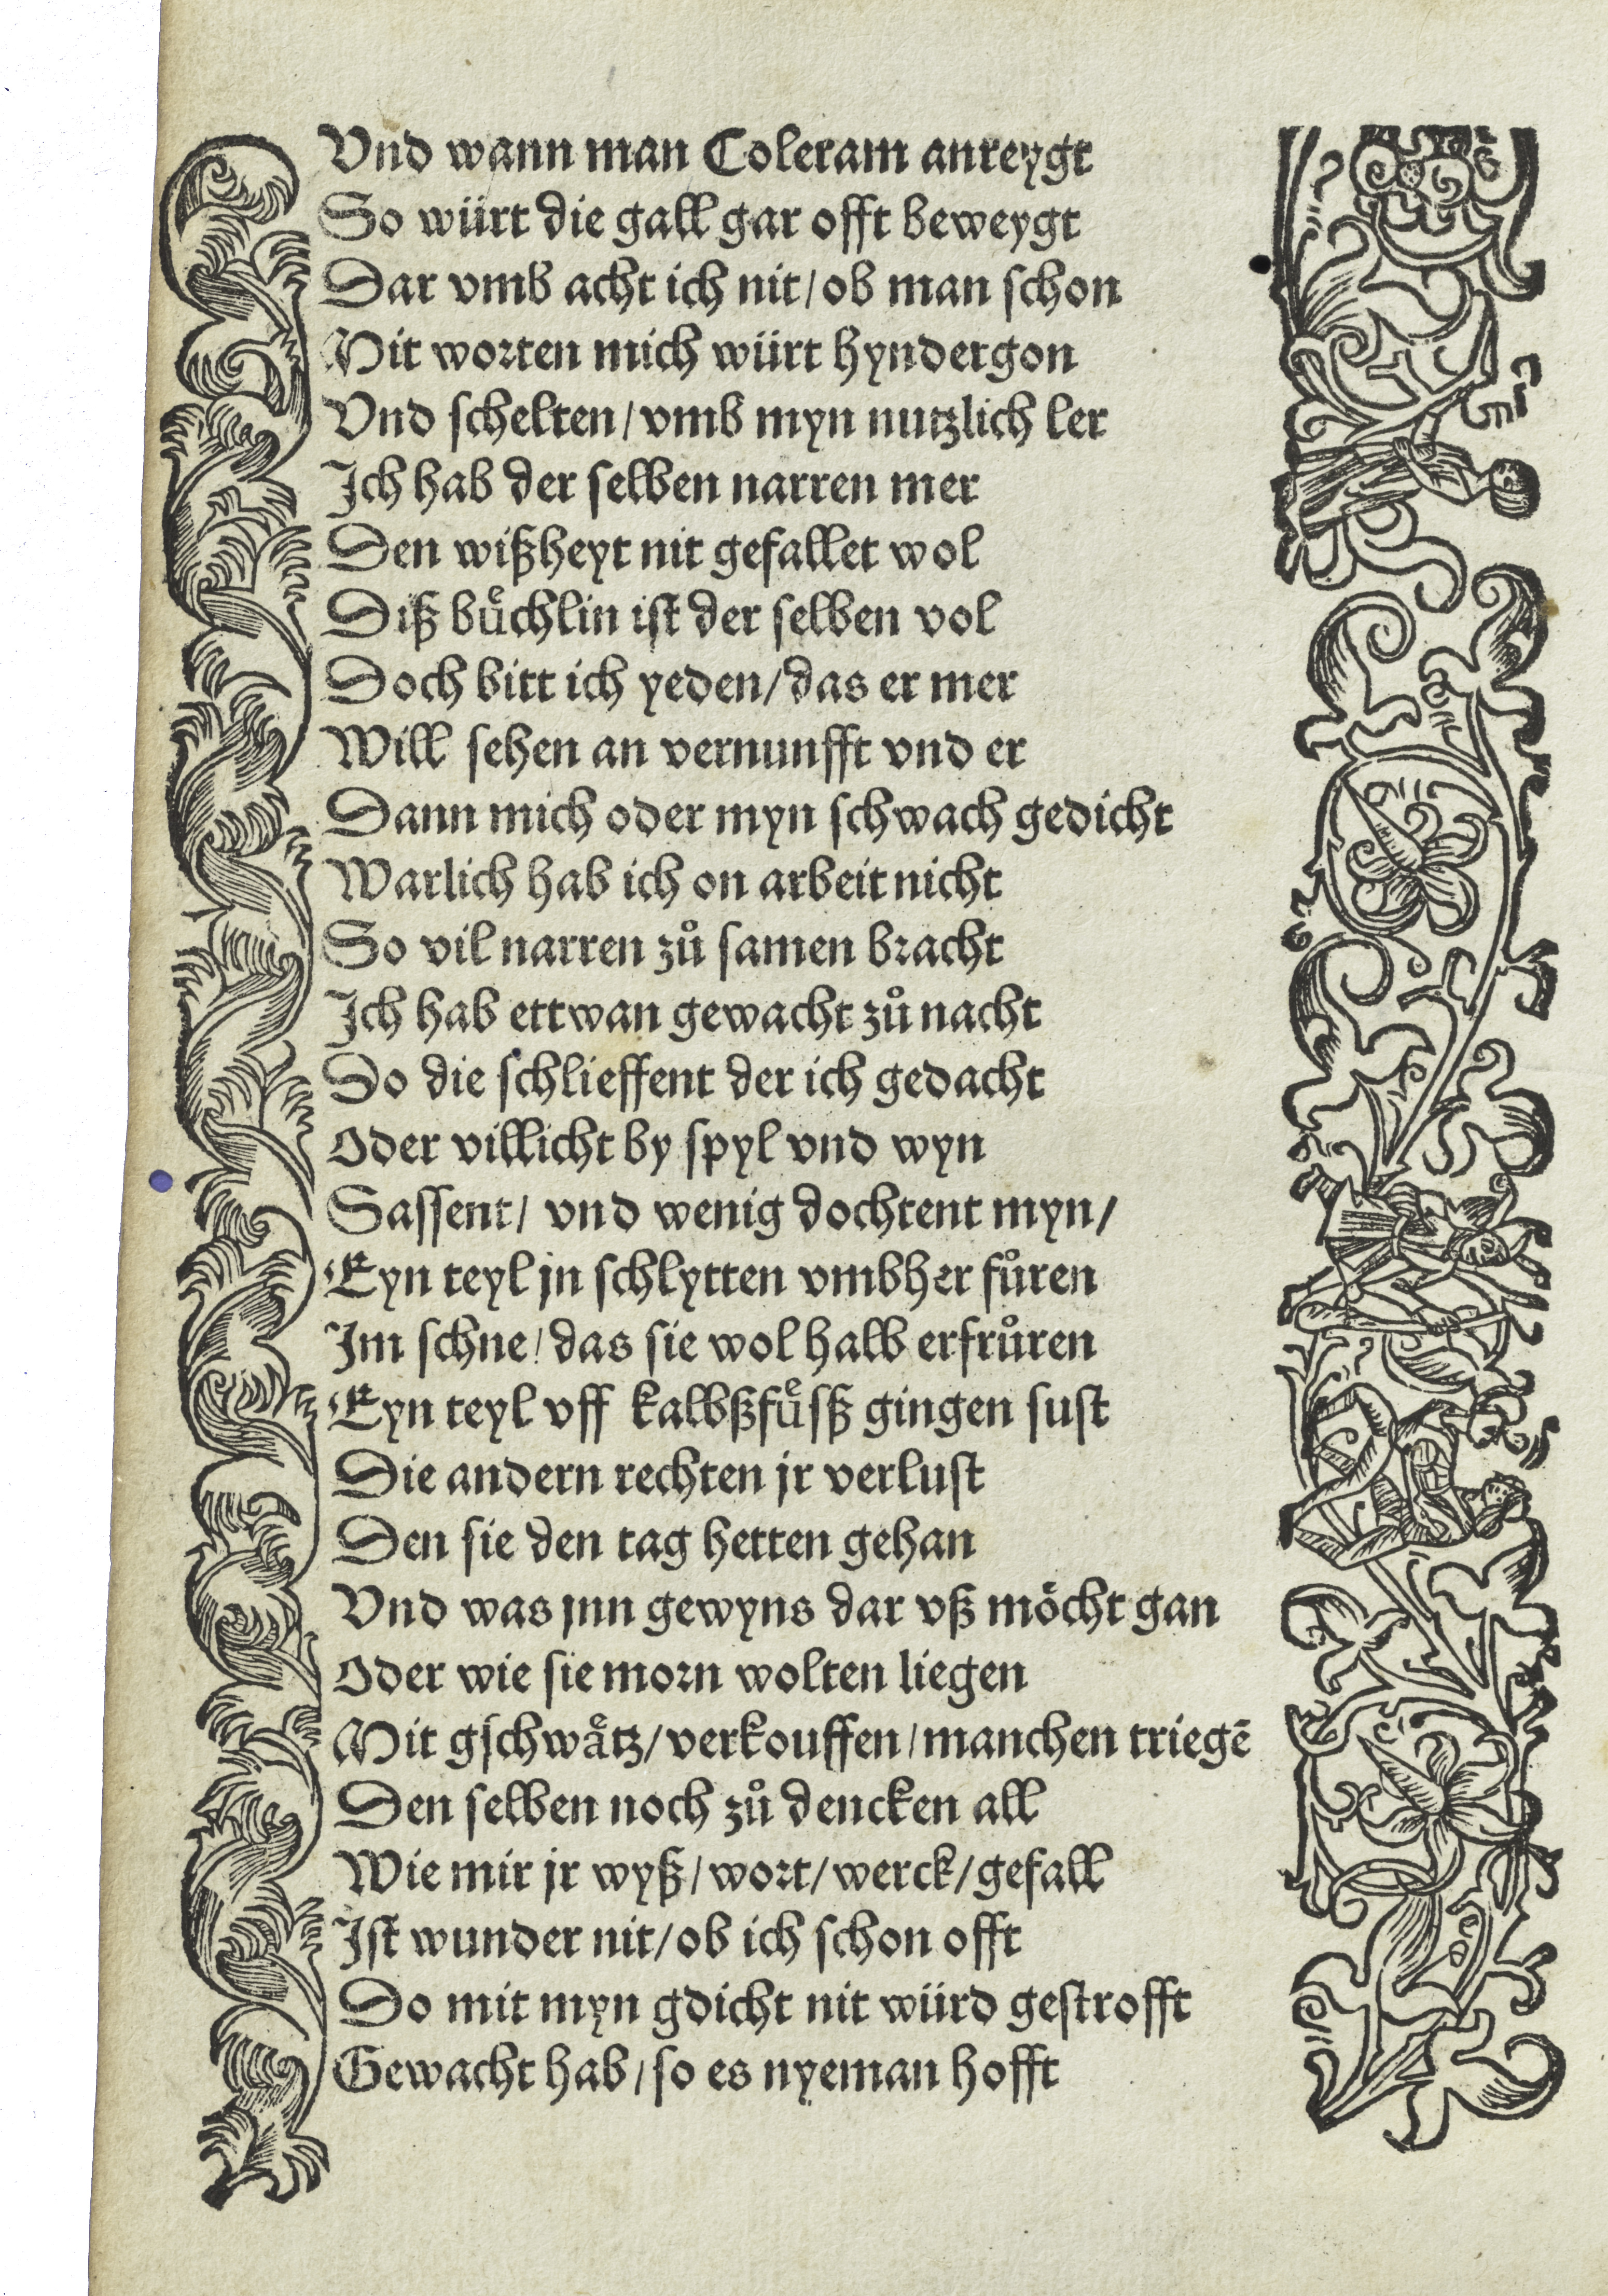 Vnd wann man Coleram anreygt
So würt die gall gar offt beweygt
Dar vmb acht ich nit/ ob man schon
Mit worten mich würt hyndergon
Vnd schelten/ vmb myn nutzlich ler
Ich hab der selben narren mer
Den wißheyt nit gefallet wol
Diß buͤchlin ist der selben vol
Doch bitt ich yeden/ das er mer
Will sehen an vernunfft vnd er
Dann mich oder myn schwach gedicht
Warlich hab ich on arbeit nicht
So vil narren zuͦ samen bracht
Ich hab ettwan gewacht zuͦ nacht
Do die schlieffent der ich gedacht
Oder villicht by spyl vnd wyn
Sassent/ vnd wenig dochtent myn/
Eyn teyl jn schlytten vmbher fuͦren
Im schne/ das sie wol halb erfruͦren
Eyn teyl vff kalbßfuͤsß gingen sust
Die andern rechten jr verlust
Den sie den tag hetten gehan
Vnd was jnn gewyns dar vß moͤcht gan
Oder wie sie morn wolten liegen
Mit gschwaͤtz/ verkouffen/ manchen triegē
Den selben noch zuͦ dencken all
Wie mir jr wyß/ wort/ werck/ gefall
Ist wunder nit/ ob ich schon offt
Do mit myn gdicht nit würd gestrofft
Gewacht hab/ so es nyeman hofft